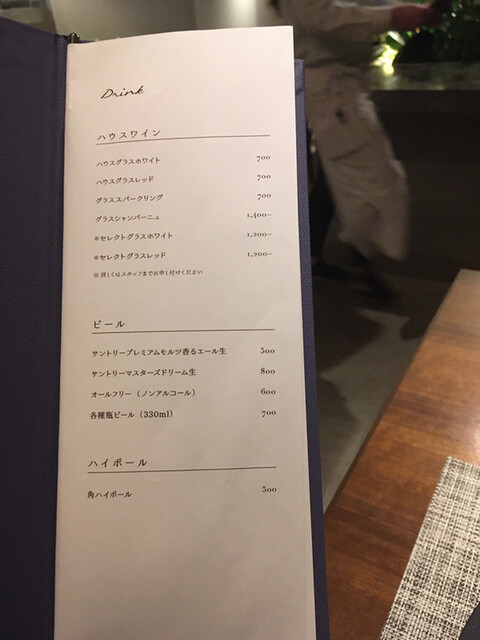 Drink
ハウスワイン
ハウスグラスホワイト 700
ハウスグラスレッド 700
グラススパークリング 700
グラスシャンパーニュ 1,400~
※セレクトグラスホワイト 1,200~
※セレクトグラスレッド 1,200~
※詳しくはスタッフまでお申し付けください
ビール
サントリープレミアムモルツ香るエール生 500
サントリーマスターズドリーム生 800
オールフリー（ノンアルコール） 600
各種瓶ビール（330ml） 700
ハイボール
角ハイボール 500